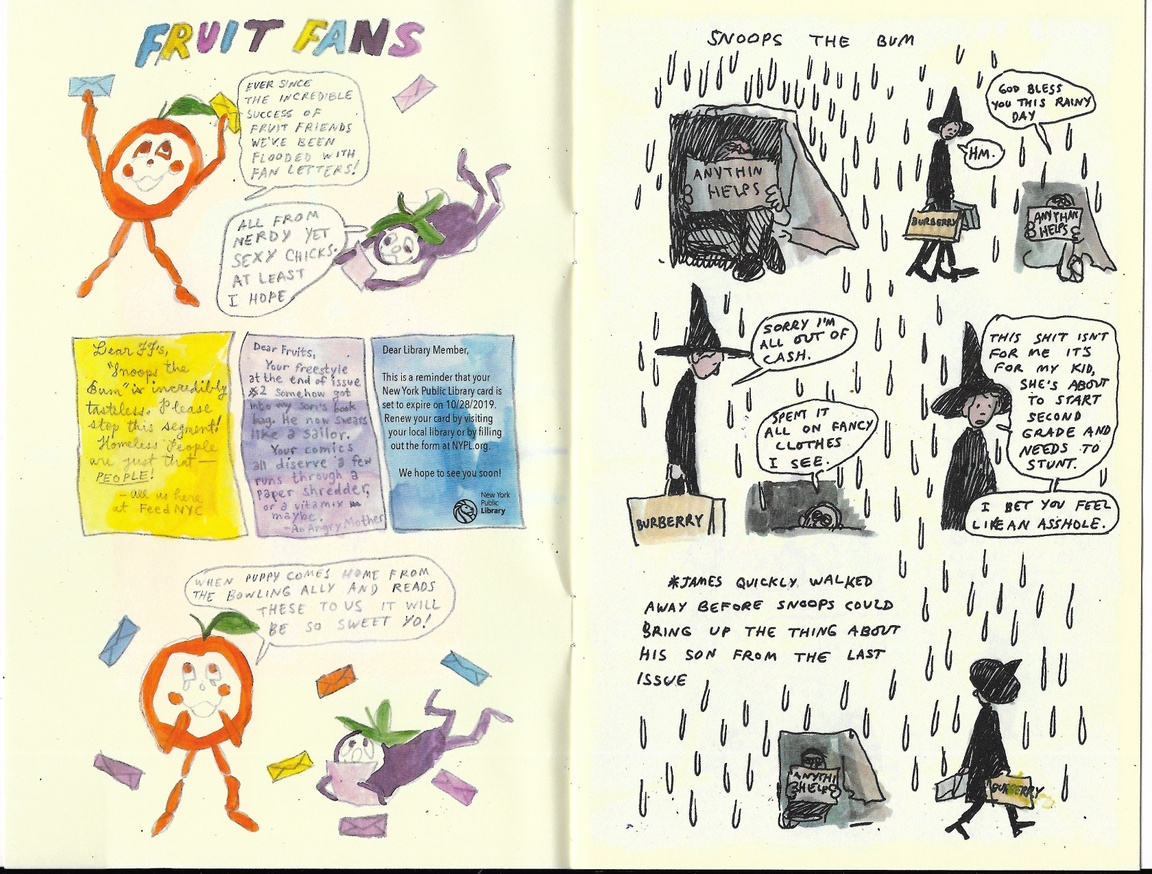 FRUIT FANS
EVER SINCE
THE INCREDIBLE
SUCCESS OF
FRUIT FRIENDS
WE'VE BEEN
FLOODED WITH
FAN LETTERS!
ALL FROM
NERDY YET
SEXY CHICKS.
AT LEAST
I HOPE
Dear FF's,
"Snoops the
Bum" is incredibly
tasteless. Please
stop this segment!
Homeless People
are just that —
PEOPLE!
- all us here
at Feed NYC
Dear Fruits,
Your freestyle
at the end of issue
#2 somehow got
into my son's book
bag. He now swears
like a sailor.
Your comics
all diserve a few
runs through a
paper shredder,
or a vitamix
maybe.
- An Angry Mother
Dear Library Member,
This is a reminder that your
New York Public Library card is
set to expire on 10/28/2019.
Renew your card by visiting
your local library or by filling
out the form at NYPL.org.
We hope to see you soon!
New York
Public
Library
WHEN PUPPY COMES HOME FROM
THE BOWLING ALLY AND READS
THESE TO US IT WILL
BE SO SWEET YO!
SNOOPS THE BUM
ANYTHIN
HELPS
HM.
BURBERRY
GOD BLESS
YOU THIS RAINY
DAY
ANYTHIN
HELPS
SORRY I'M
ALL OUT OF
CASH.
SPENT IT
ALL ON FANCY
CLOTHES
I SEE.
BURBERRY
THIS SHIT ISN'T
FOR ME IT'S
FOR MY KID,
SHE'S ABOUT
TO START
SECOND
GRADE AND
NEEDS TO
STUNT.
I BET YOU FEEL
LIKE AN ASSHOLE.
*JAMES QUICKLY WALKED
AWAY BEFORE SNOOPS COULD
BRING UP THE THING ABOUT
HIS SON FROM THE LAST
ISSUE
ANYTHI
HELPS
BURBERRY